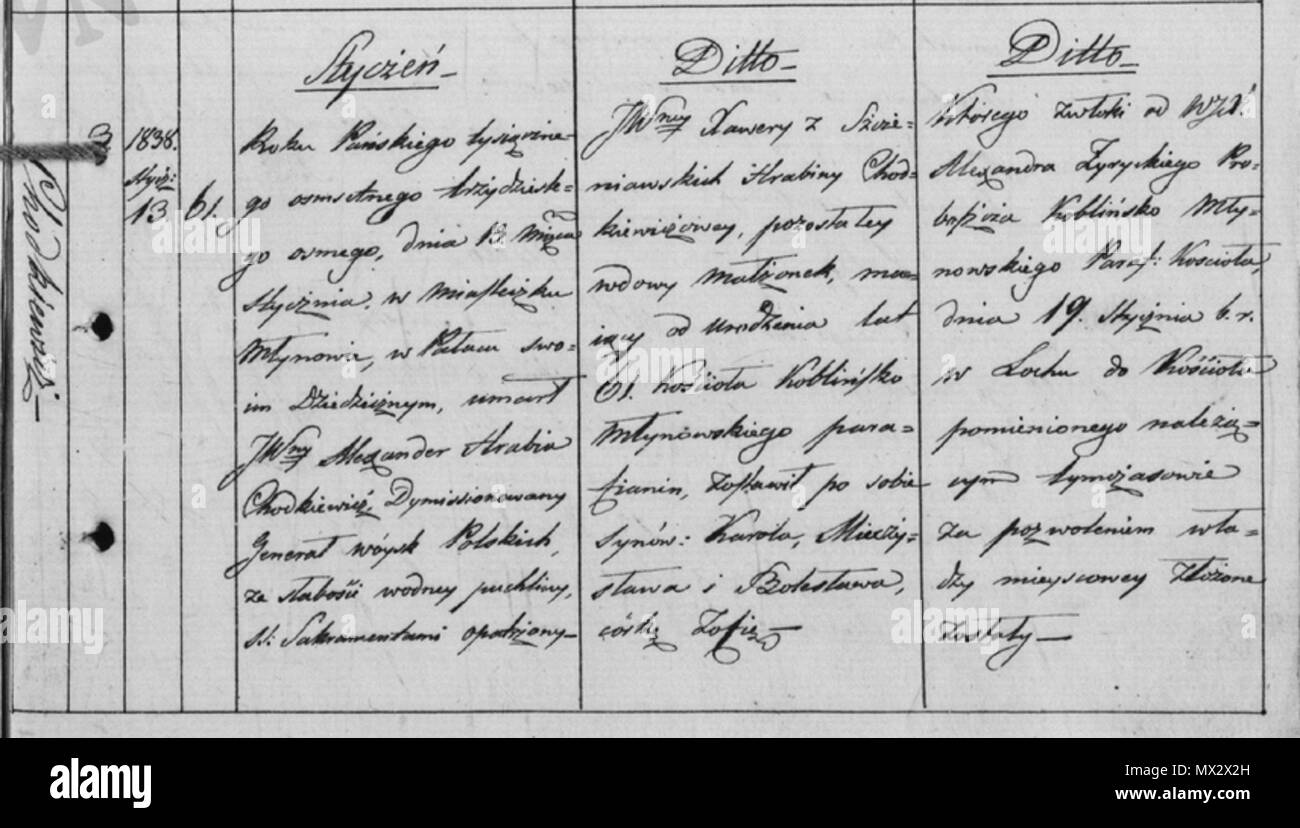 Chodkiewicz
3
1838.
Stycz:
13.
61.
Styczeń
Roku Pańskiego tysiączne-
go osmsetnego trzydziesk-
go osmego, dnia 13. Miesca
Stycznia, w Miasteczku
Młynowie, w Pałacu swo-
im Dziedzicznym, umarł
JWny Alexander Hrabia
Chodkiewicz, Dymissionowany
Generał wóysk Polskich,
ze słabości wodney puchliny,
SS: Sakramentami opatrzony
Ditto
JWney Xawery z Szcze-
niawskich Hrabiny Chod-
kiewiczowey, pozostałey
wdowy Małżonek, ma-
iący od Urodzenia lat
61. Kościoła Koblińsko
Młynowskiego para-
fianin, Zostawił po sobie
synów: Karola, Mieczy-
sława i Bolesława,
córkę Zofię
Ditto
którego zwłoki od WJX.
Alexandra Zyryckiego Pro-
boszcza Koblińsko Mły-
nowskiego Paraf: Kościoła,
dnia 19. Stycznia b. r.
w Lochu do Kościoła
pomienionego należą-
cym tymczasowie
za pozwoleniem wła-
dzy mieyscowey złożone
zostały
alamy
alamy
Image ID: MX2X2H
www.alamy.com